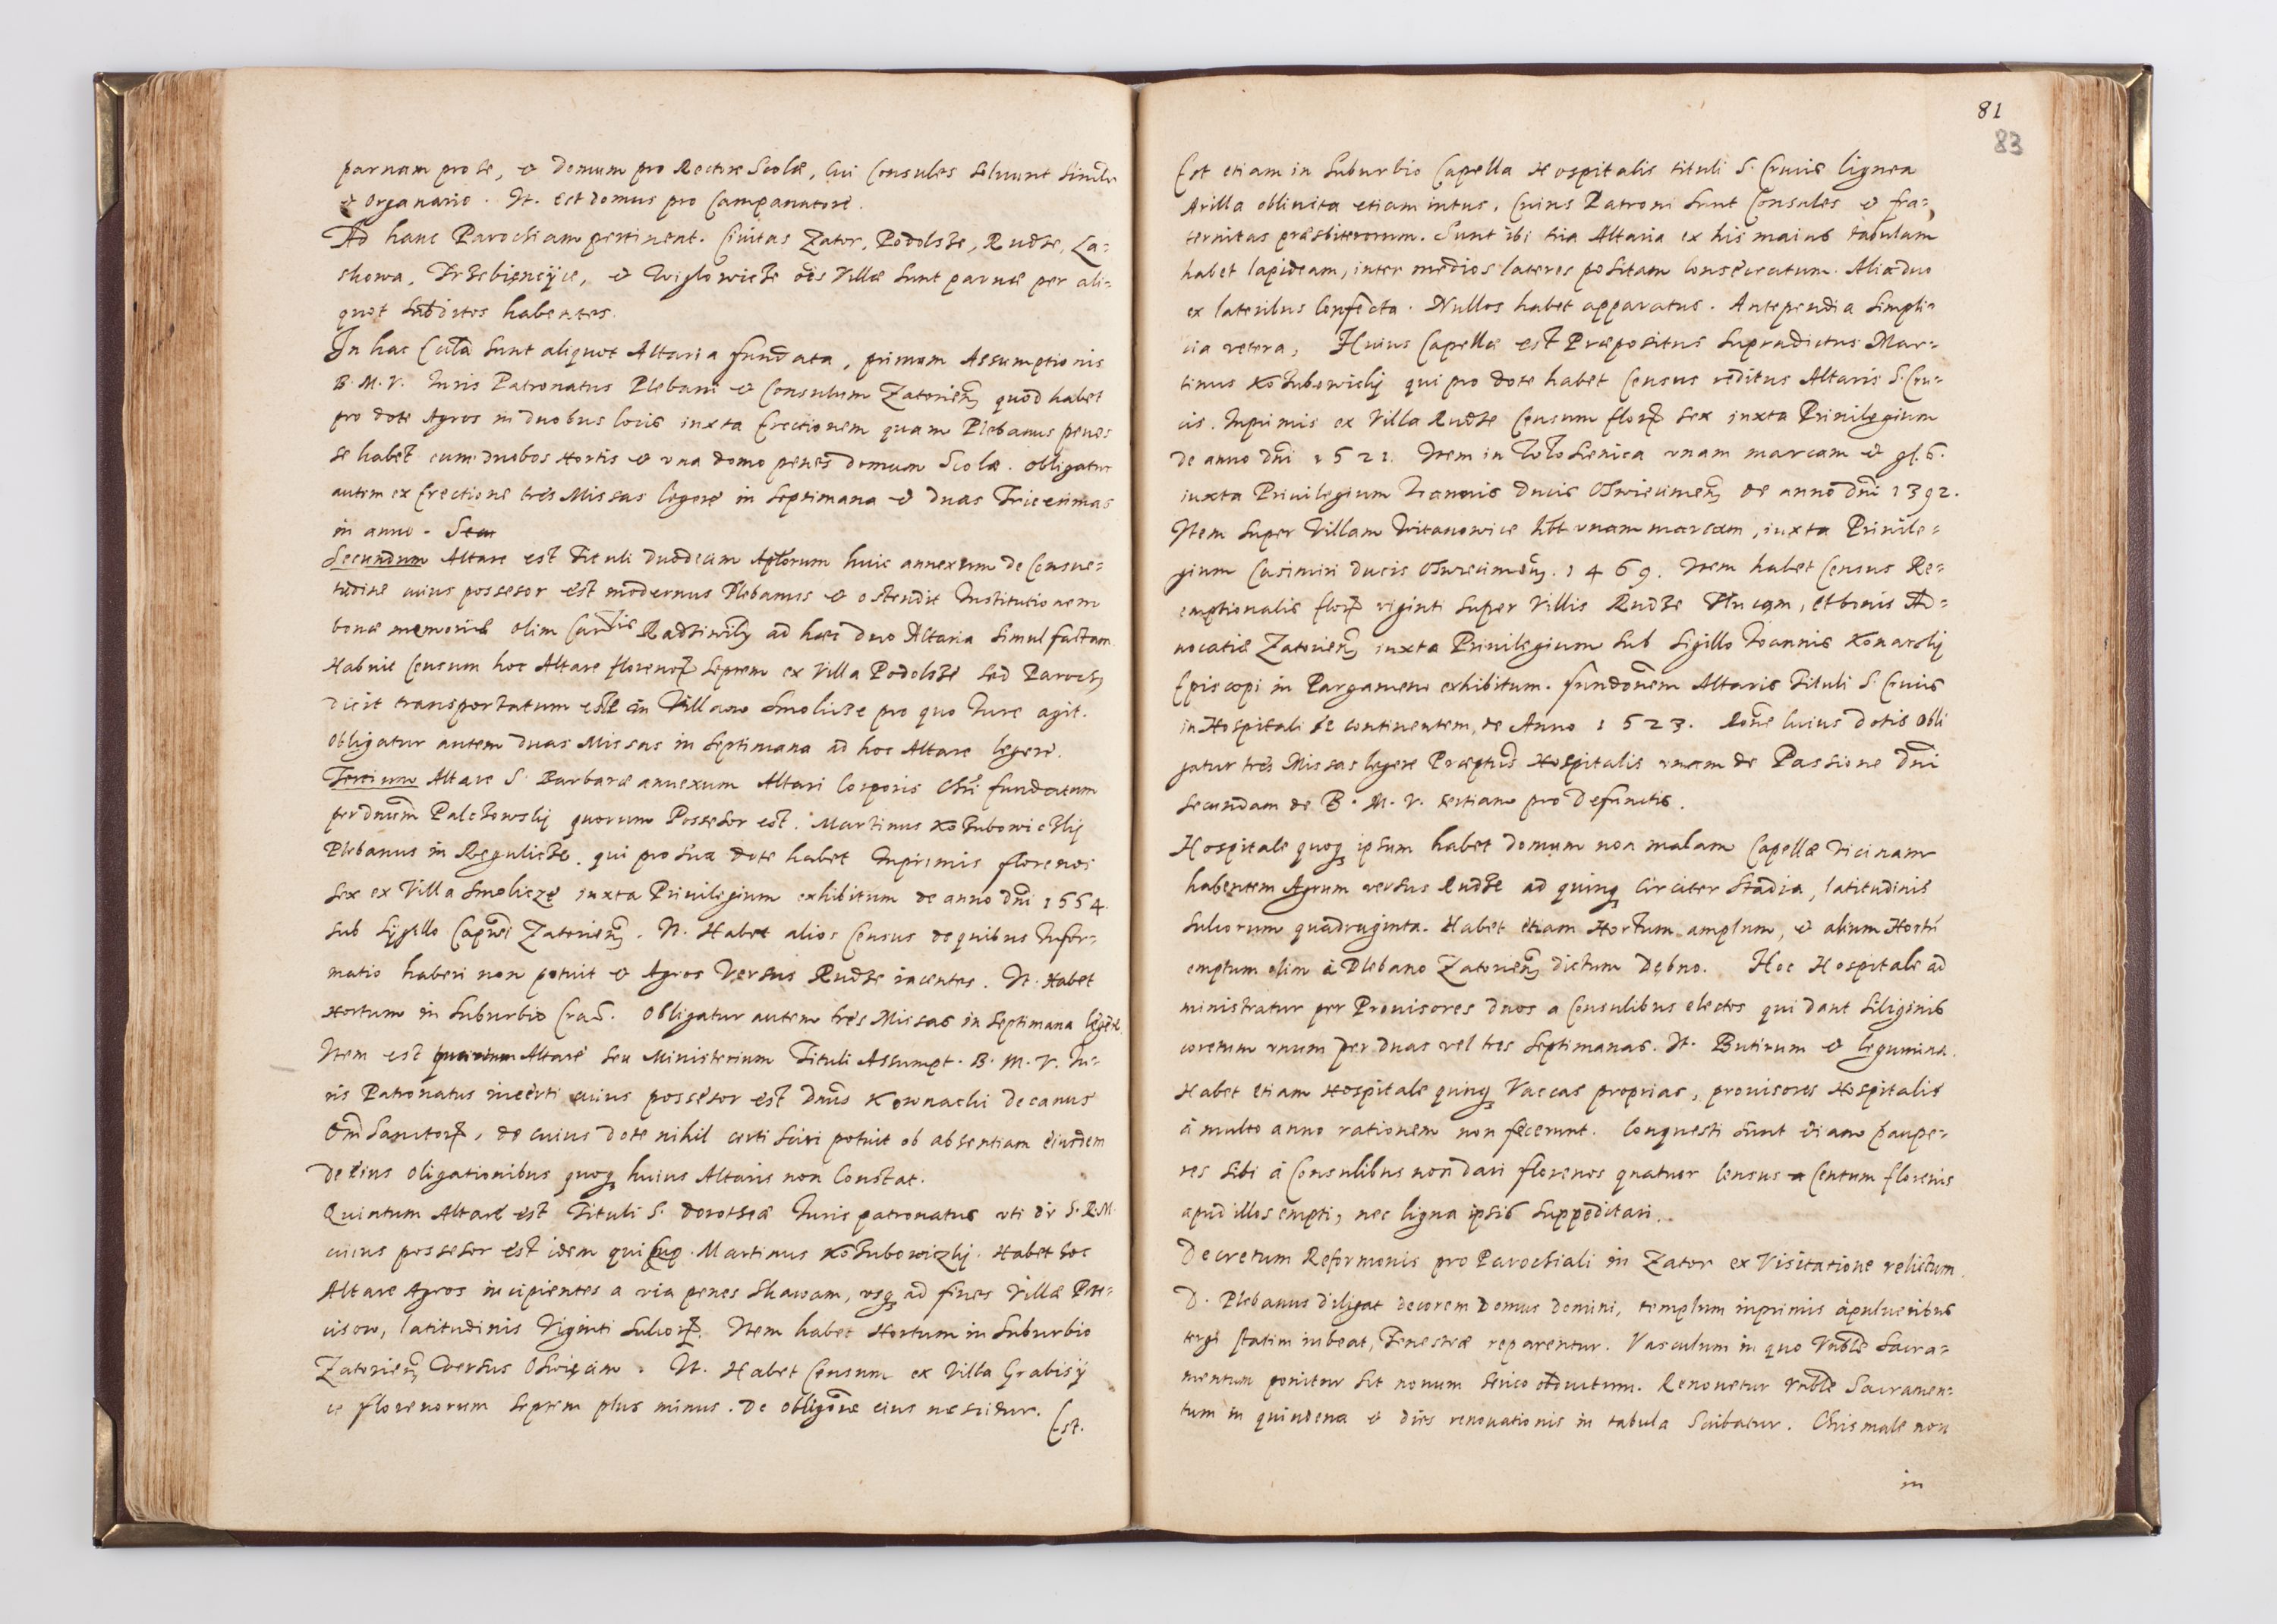 parnam pro se, et domum pro Rectore Scolæ, cui Consules soluunt simulr
et organario. It. est domus pro Campanatore.
Ad hanc Parochiam pertineat. Ciuitas Zator, Podolsze, Rudze, La=
skowa, Trzebiencÿce, et Wiglowicze oes Villæ sunt paruæ per ali=
quot subditos habentes.
In hac Ecclã sunt aliquot Altaria fundata, primum Assumptionis
B. M. V. Iuris Patronatus Plebani et Consulum Zatorien quod habet
pro dote Agros in duobus locis iuxta Erectionem quam Plebanus penes
se habet cum duobos Hortis et vna domo penes domum Scolæ. Obligatur
autem ex Erectione tres Missas legere in septimana et duas Tricennas
in anno. Secu
Secundum Altare est Tituli duodecim Aptorum huic annexum de Consue=
tudine cuius possesor est modernus Plebanus et ostendit Institutionem
bonæ memoriæ olim Carlis Radziwily ad hæc duo Altaria simul factam
Habuit Censum hoc Altare florenoꝝ septem ex Villa Podolsze sed Paroch
dicit transportatum esse in Villam Smolicze pro quo Iure agit.
Obligatur autem duas Missas in septimana ad hoc Altare legere.
Tertium Altare S. Barbaræ annexum Altari Corporis Chri fundatum
per dnum Palczowsky quorum Possesor est. Martinus Kozubowiczky
Plebanus in Regulicze. qui pro sua dote habet Inprimis florenos
sex ex Villa Smolicze iuxta Priuilegium exhibitum de anno dni 1554.
sub Sygillo Capnei Zatorien. It. Habet alios Census de quibus Infor=
matio haberi non potuit et Agros Versus Rudze iacentes. It. Habet
Hortum in suburbio Crac. Obligatur autem tres Missas in septimana legere.
Item est quartum Altare seu Ministerium Tituli Assumpt. B. M. V. Iu=
ris Patronatus incerti cuius possesor est Dnus Kownacki decanus
Om Sanctoꝝ, de cuius dote nihil certi sciri potuit ob absentiam eiusdem
de eius oligationibus quoqꝫ huius Altaris non Constat.
Quintum Altare est Tituli S. Dorotheæ Iuris patronatus vti dr S. R. M.
cuius possesor est idem qui sup. Martinus Kozubowiczky. Habet hoc
Altare Agros incipientes a via penes Skawam, vsqꝫ ad fines Villæ
cisow, latitudinis Viginti sulcoꝝ. Item habet Hortum in suburbio
Zatorien versus Oswięcim. It. Habet Censum ex Villa Grabisÿ
ce florenorum septem plus minus. De obligõne eius nescitur.
Est.
81
83
Est etiam in suburbio Capella Hospitalis tituli S. Crucis lignea
Arilla oblinita etiam intus, Cuius Patroni sunt Consules et fra=
ternitas præsbiterorum. Sunt ibi tria Altaria ex his maius tabulam
habet lapideam, inter medios lateres positam consecratum. Alia duo
ex lateribus Confecta. Nullos habet apparatus. Antependia simpli=
cia vetera, Huius Capellæ est Præpositus supradictus Mar=
tinus Kozubowicky qui pro dote habet Census reditus Altaris S. Cru=
cis. Inprimis ex Villa Rudze Censum floꝝ sex iuxta Priuilegium
de anno dni 1521. Item in Wloszienica vnam marcam et gl. 6.
iuxta Priuilegium Ioannis Ducis Oswiecimen de anno dni 1392.
Item super Villam Witanowice hbt vnam marcam, iuxta Priuile=
gium Casimiri ducis Oswiecimen. 1469. Item habet Census Re=
emptionalis floꝝ viginti super Villis Rudze et bonis Ad=
uocatiæ Zatorien iuxta Priuilegium sub sigillo Ioannis Konarsky
Episcopi in Pargameno exhibitum. fundonem Altaris Tituli S. Crucis
in Hospitali se continentem, de Anno 1523. Rone huius dotis obli
gatur tres Missas legere Præptus Hospitalis vnam de Passione Dni
secundam de B. M. V. tertiam pro Defunctis.
Hospitale quoqꝫ ipsum habet domum non malam Capellæ vicinam
habentem Agrum versus Rudze ad quinqꝫ circiter stadia, latitudinis
sulcorum quadraginta. Habet etiam Hortum amplum, et alium Hortu
emptum olim à Plebano Zatorien dictum Dębno. Hoc Hospitale ad
ministratur per Prouisores duos a Consulibus electos qui dant siliginis
coretum vnum per duas vel tres septimanas. It. Butirum et legumina.
Habet etiam Hospitale quinqꝫ Vaccas proprias, prouisores Hospitalis
à multo anno rationem non fecerunt. Conquesti sunt etiam paupe=
res sibi à Consulibus non dari florenos quatuor Census a Centum florenis
apud illos empti, nec ligna ipsis suppeditari.
Decretum Reformonis pro Parochiali in Zator ex Visitatione relictum.
D. Plebanus diligat decorem Domus Domini, templum inprimis à pulueribus
tergi statim iubeat, Fenestræ reparentur. Vasculum in quo Vnble Sacra=
mentum ponitur sit nouum serico obductum. Renouetur Vnble Sacramen=
tum in quindena et dies renouationis in tabula scribatur. Chrismale non
in